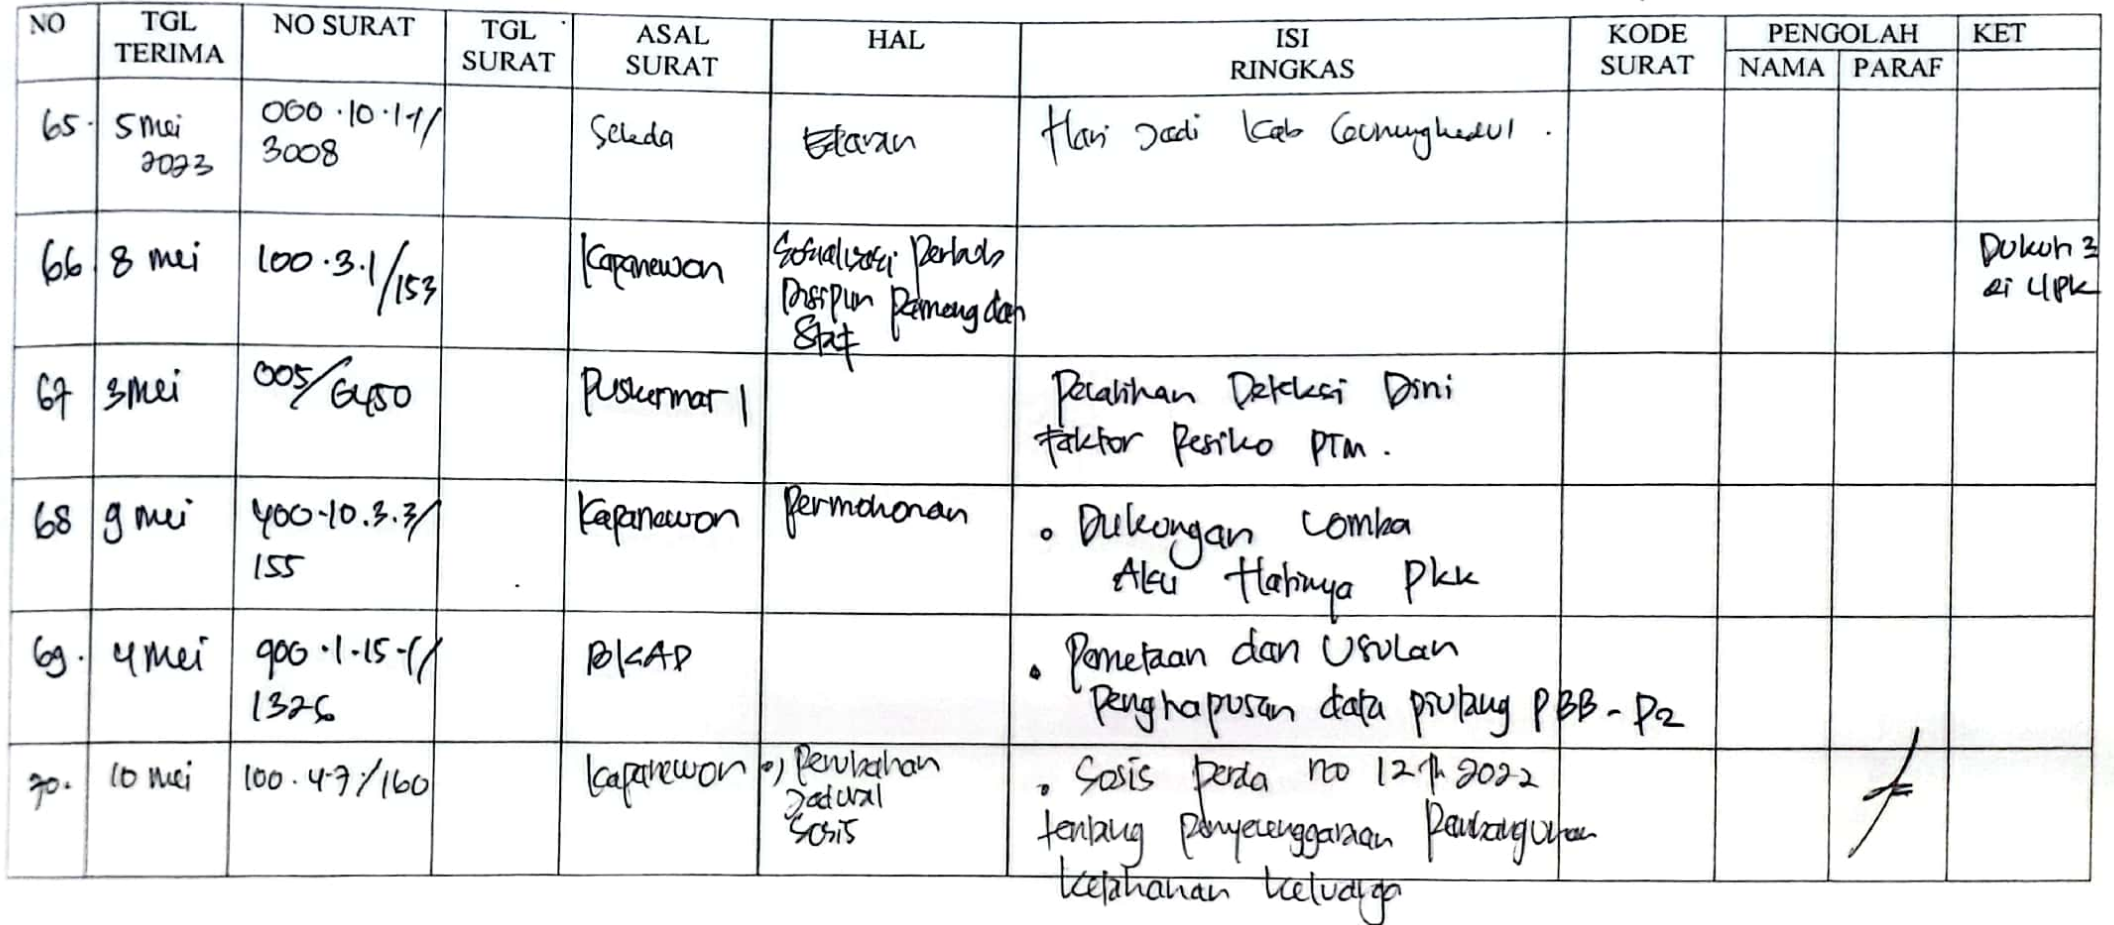 NO TGL TERIMA NO SURAT TGL SURAT ASAL SURAT HAL ISI RINGKAS KODE SURAT PENGOLAH KET
NAMA PARAF
65. 5 mei 2023 000.10.1.1/ 3008 Sekda Edaran Hari Jadi Kab Gunungkidul.
66 8 mei 100.3.1/153 Kapanewon Sosialisasi Perbub Disiplin Pamong dan Staf Dukuh 3 di UPK
67 3 mei 005/6450 Puskesmas 1 Pelatihan Deteksi Dini
Faktor Resiko PTM.
68 9 mei 400.10.3.3/ 155 Kapanewon Permohonan • Dukungan Lomba
Aku Hatinya PKK
69. 4 mei 900.1.15.1/ 1326 BKAD • Pemetaan dan Usulan
Penghapusan data piutang PBB-P2
70. 10 mei 100.4.7/160 Kapanewon •) Perubahan Jadwal Sosis • Sosis Perda no 12 th 2022
tentang penyelenggaraan Pembangunan
Ketahanan keluarga